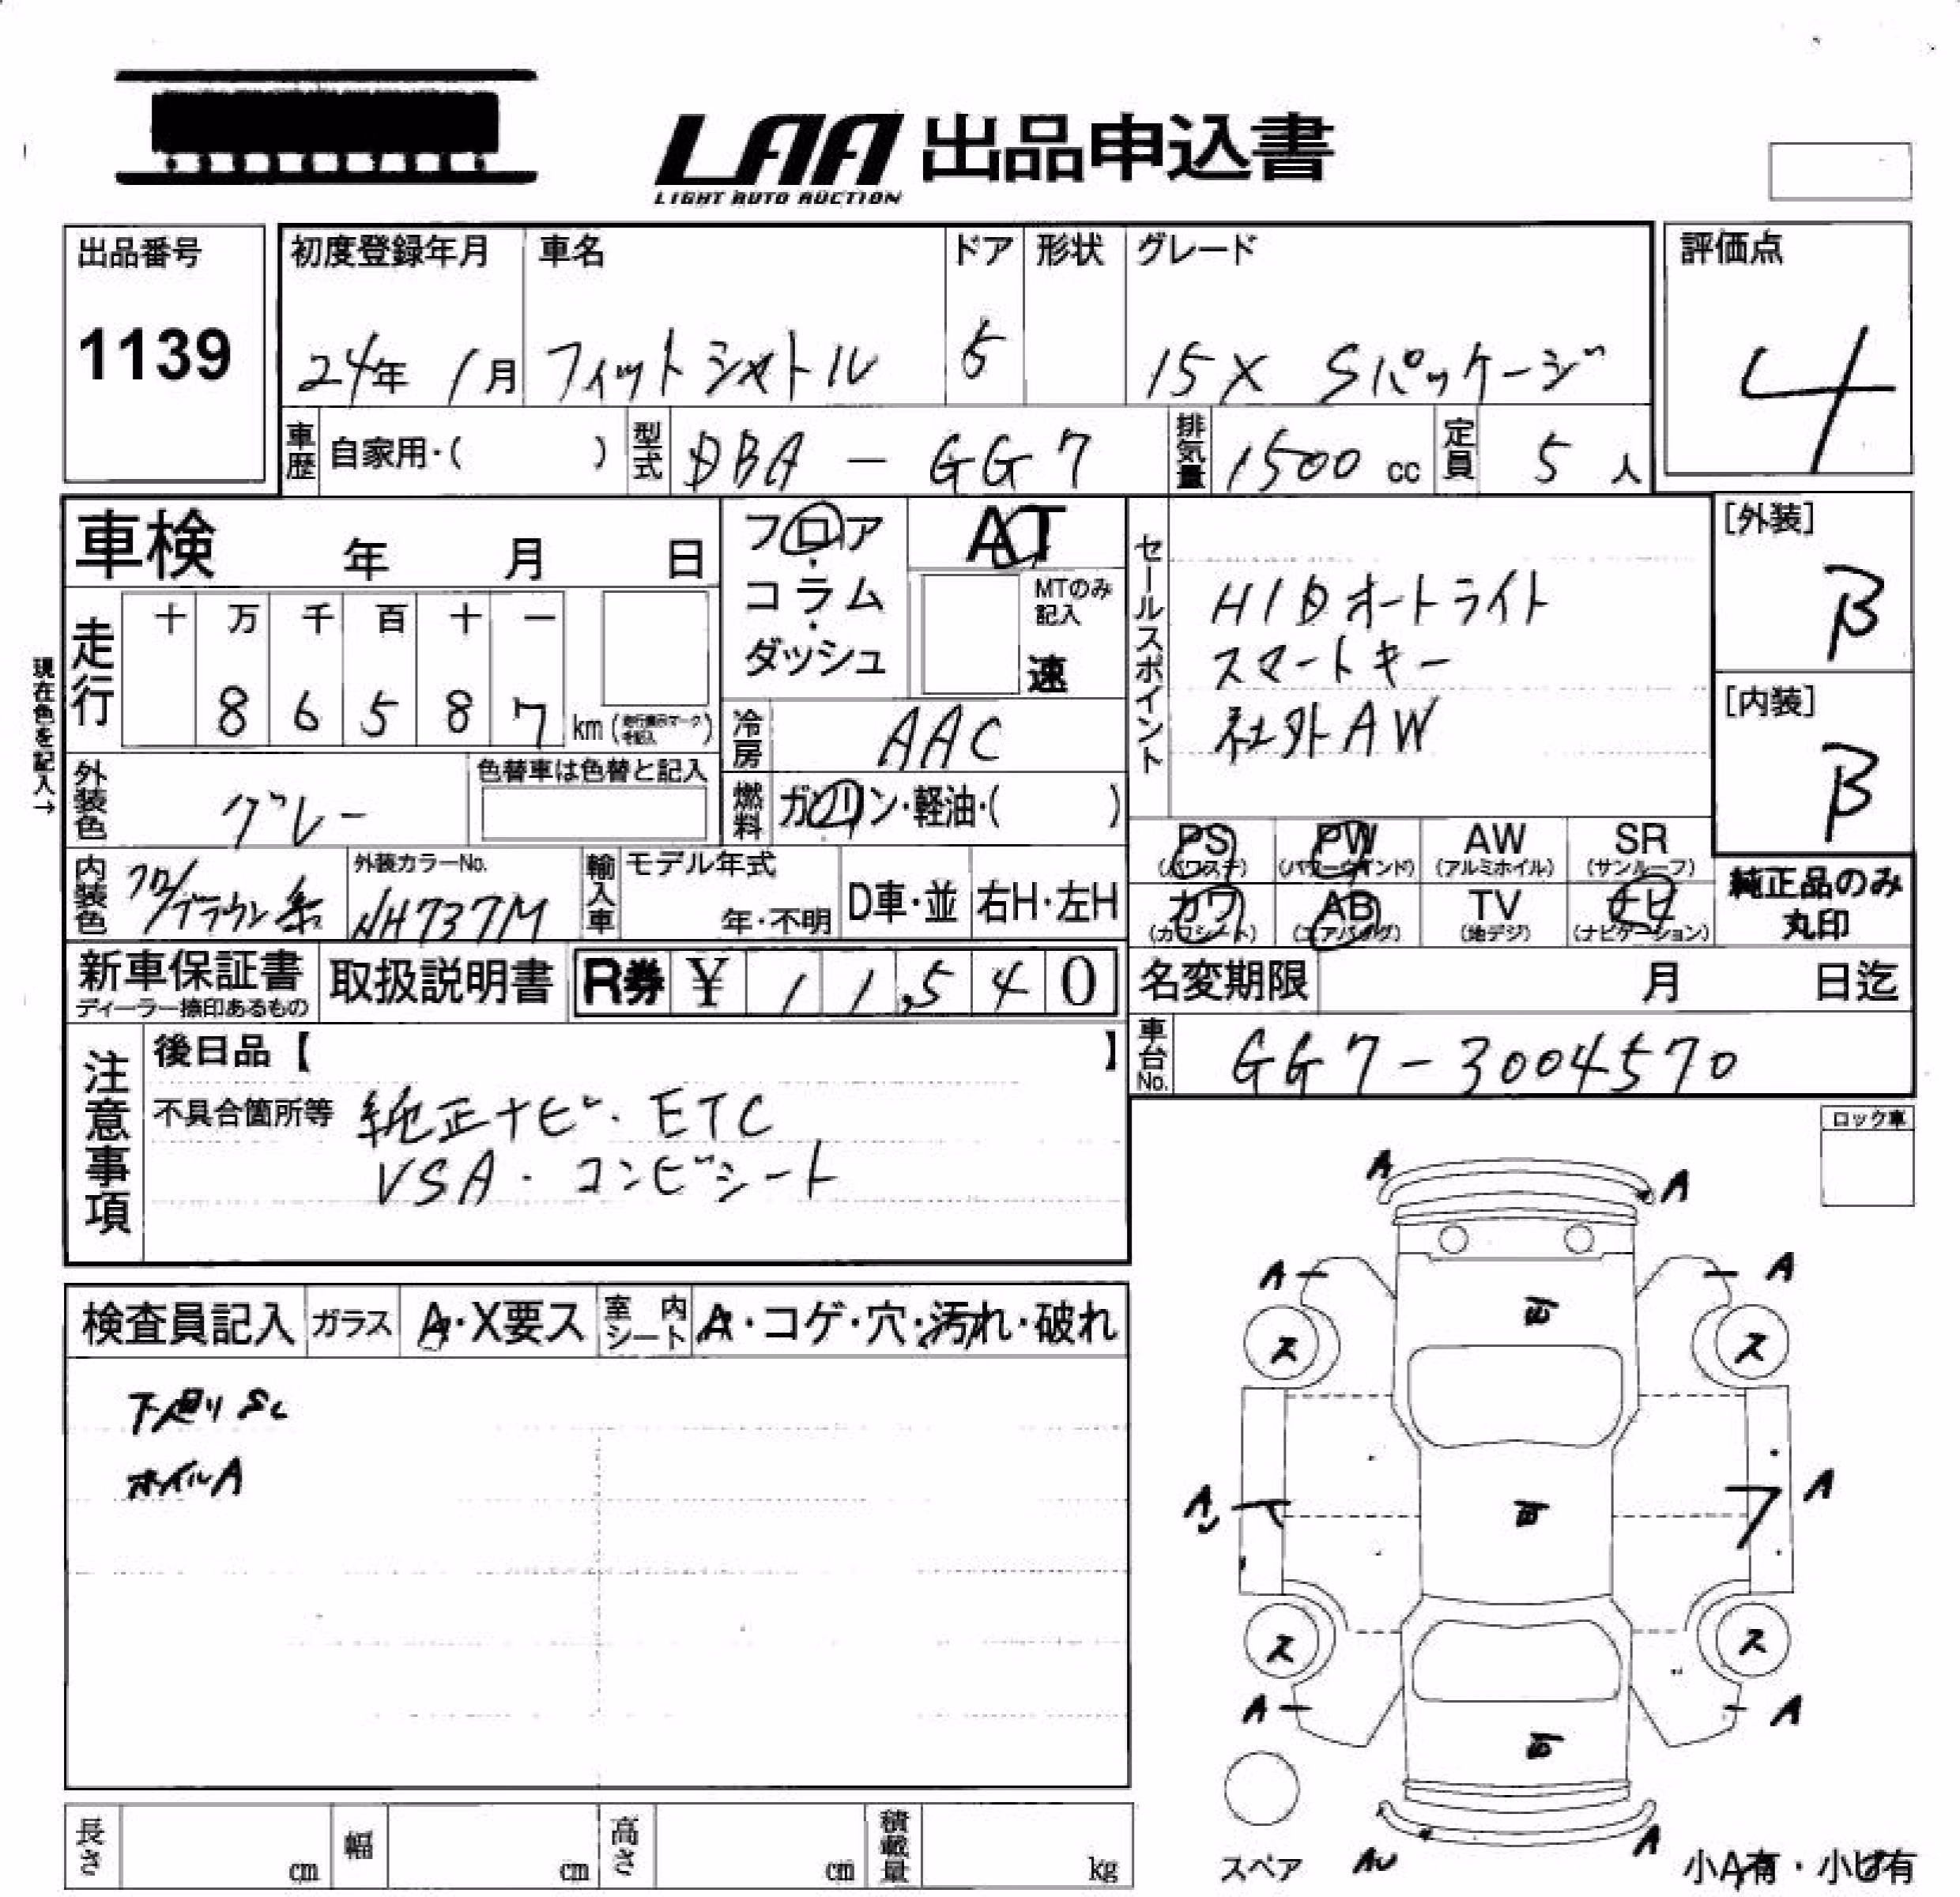 LAA 出品申込書
LIGHT AUTO AUCTION
出品番号 初度登録年月 車名 ドア 形状 グレード 評価点
1139 24年 1月 フィットシャトル 5 15X Sパッケージ 4
車歴 自家用・( ) 型式 DBA - GG7 排気量 1500 cc 定員 5 人
車検 年 月 日
フロア・コラム・ダッシュ
AT
MTのみ記入
速
セールスポイント
HIDオートライト
スマートキー
社外AW
[外装]
B
[内装]
B
現在色を記入→
走行 十 万 千 百 十 一
8 6 5 8 7 km (走行表示マーク を記入)
冷房 AAC
外装色 グレー 色替車は色替と記入
燃料 ガソリン・軽油・( )
PS (パワステ) PW (パワーウインド) AW (アルミホイル) SR (サンルーフ)
カワ (カワシート) AB (エアバッグ) TV (地デジ) ナビ (ナビゲーション)
純正品のみ
丸印
内装色 クロ/ブラウン系 外装カラーNo. NH737M 輸入車 モデル年式 年・不明 D車・並 右H・左H
新車保証書 取扱説明書 R券 ¥ 11,540
ディーラー捺印あるもの
名変期限 月 日迄
車台No. GG7-3004570
注意事項
後日品【 】
不具合箇所等 純正ナビ・ETC
VSA・コンビシート
ロック車
検査員記入 ガラス A・X要ス 室内シート A・コゲ・穴・汚れ・破れ
下廻りSC
ホイルA
A A
A A
ス ス
A A
ス ス
A A
スペア AU A 小A有・小ピ有
長さ cm 幅 cm 高さ cm 積載量 kg